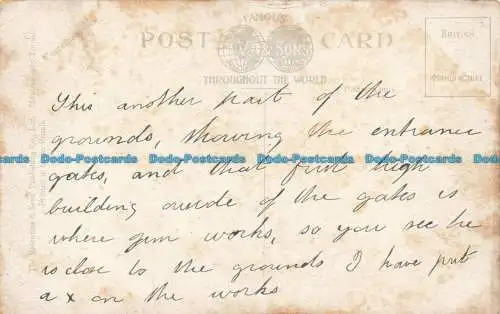 FAMOUS
POST CARD
& SONS
THROUGHOUT THE WORLD
BRITISH
MANUFACTURE
This another part of the
grounds, showing the entrance
gates, and that first high
building outside of the gates is
where Jim works, so you see he
is close to the grounds I have put
a x on the works
Dodo-Postcards Dodo-Postcards Dodo-Postcards Dodo-Postcards Dodo-Postcards